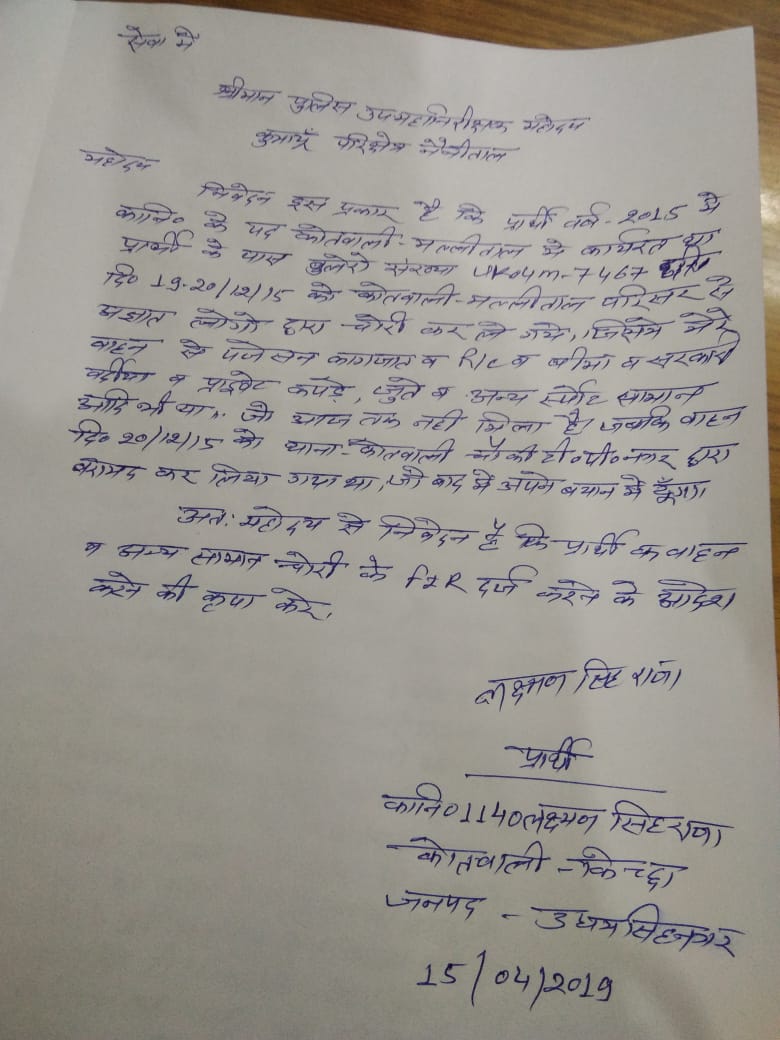 सेवा में
श्रीमान पुलिस उपमहानिरीक्षक महोदय
कुमाऊँ परिक्षेत्र नैनीताल
महोदय
निवेदन इस प्रकार है कि प्रार्थी वर्ष-2015 में
कानि० के पद कोतवाली-मल्लीताल में कार्यरत था
प्रार्थी के पास बुलेरो संख्या UK04M-7467
दि० 19-20/12/15 को कोतवाली-मल्लीताल परिसर से
अज्ञात लोगो द्वारा चोरी कर ले गये, जिसमे मेरे
वाहन से पजेसन कागजात व R/C व बीमा व सरकारी
वर्दीया व प्राइवेट कपड़े, जुते व अन्य र्स्पोट सामान
आदि भी था,, जो आज तक नही मिला है। जबकि वाहन
दि० 20/12/15 को थाना-कोतवाली चौकी टी०पी०नगर द्वारा
बरामद कर लिया गया था, जो बाद में अपने बयान में दूँगा।
अत: महोदय से निवेदन है कि प्रार्थी के वाहन
व अन्य सामान चोरी के FIR दर्ज करने के आदेश
करने की कृपा करे।
लक्ष्मण सिंह राणा
प्रार्थी
कानि० 1140 लक्ष्मण सिंह राणा
कोतवाली - किच्छा
जनपद - उधमसिंहनगर
15/04/2019